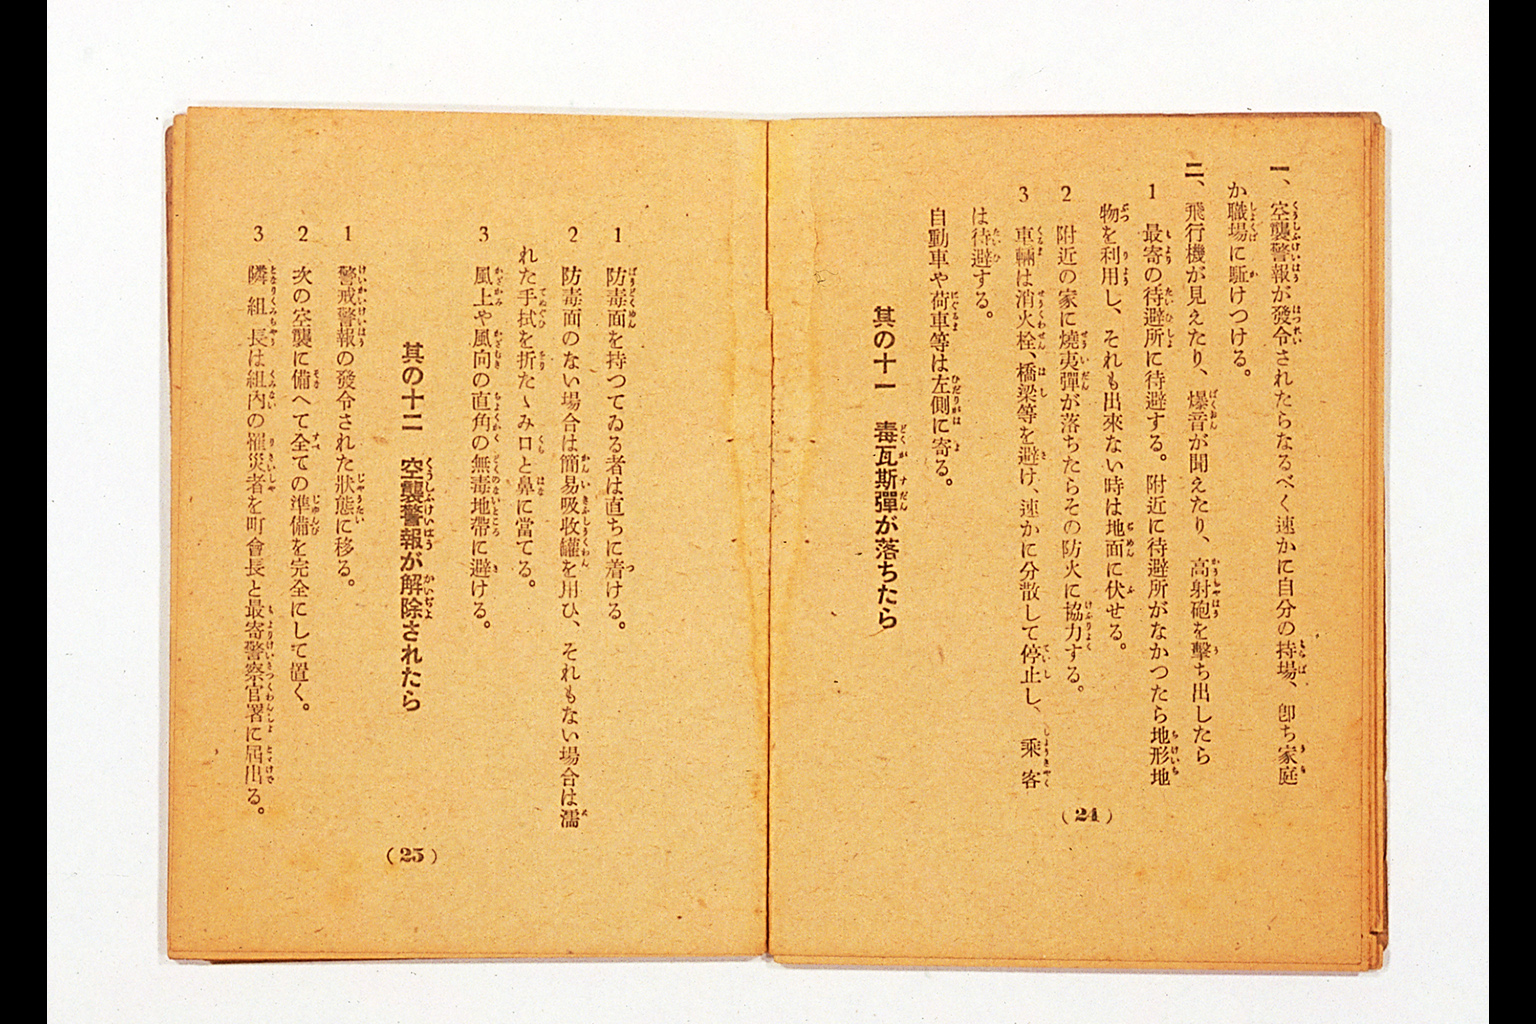 一、空襲警報が發令されたらなるべく速かに自分の持場、卽ち家庭
か職場に駈けつける。
二、飛行機が見えたり、爆音が聞えたり、高射砲を擊ち出したら
1 最寄の待避所に待避する。附近に待避所がなかつたら地形地
物を利用し、それも出來ない時は地面に伏せる。
2 附近の家に燒夷彈が落ちたらその防火に協力する。
3 車輛は消火栓、橋梁等を避け、速かに分散して停止し、乘客
は待避する。
自動車や荷車等は左側に寄る。
其の十一 毒瓦斯彈が落ちたら
(24)
1 防毒面を持つてゐる者は直ちに着ける。
2 防毒面のない場合は簡易吸收罐を用ひ、それもない場合は濡
れた手拭を折たゝみ口と鼻に當てる。
3 風上や風向の直角の無毒地帶に避ける。
其の十二 空襲警報が解除されたら
1 警戒警報の發令された狀態に移る。
2 次の空襲に備へて全ての準備を完全にして置く。
3 隣組長は組內の罹災者を町會長と最寄警察官署に屆出る。
(25)